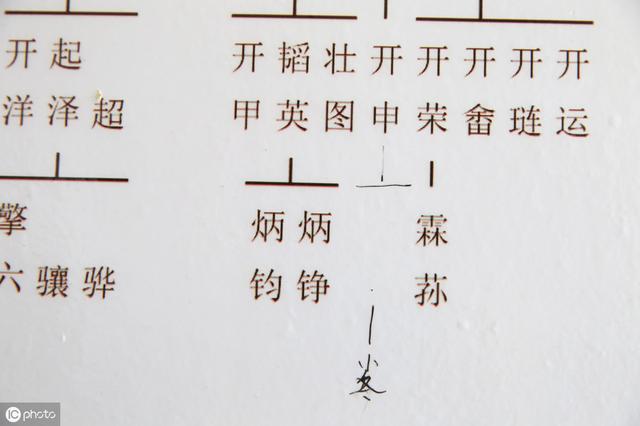 开起 开韬壮开开开开开
洋泽超 甲英图申荣畬琏运
擎 炳炳 霖
六骧骅 钧铮 荪
iC photo